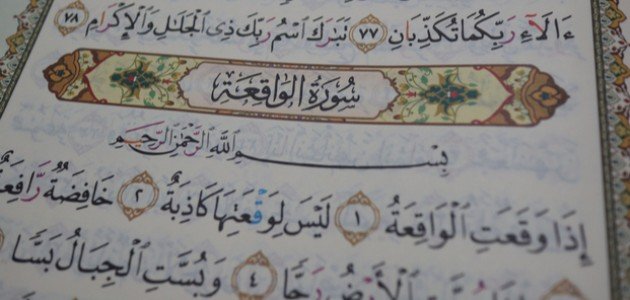 ءَالَآءِ رَبِّكُمَا تُكَذِّبَانِ ٧٧ تَبَٰرَكَ ٱسْمُ رَبِّكَ ذِى ٱلْجَلَٰلِ وَٱلْإِكْرَامِ ٧٨
سُورَةُ الوَاقِعَةِ
بِسْمِ ٱللَّهِ ٱلرَّحْمَٰنِ ٱلرَّحِيمِ
إِذَا وَقَعَتِ ٱلْوَاقِعَةُ ١ لَيْسَ لِوَقْعَتِهَا كَاذِبَةٌ ٢ خَافِضَةٌ رَّافِعَةٌ
ٱلْأَرْضُ رَجًّا ٤ وَبُسَّتِ ٱلْجِبَالُ بَسًّا